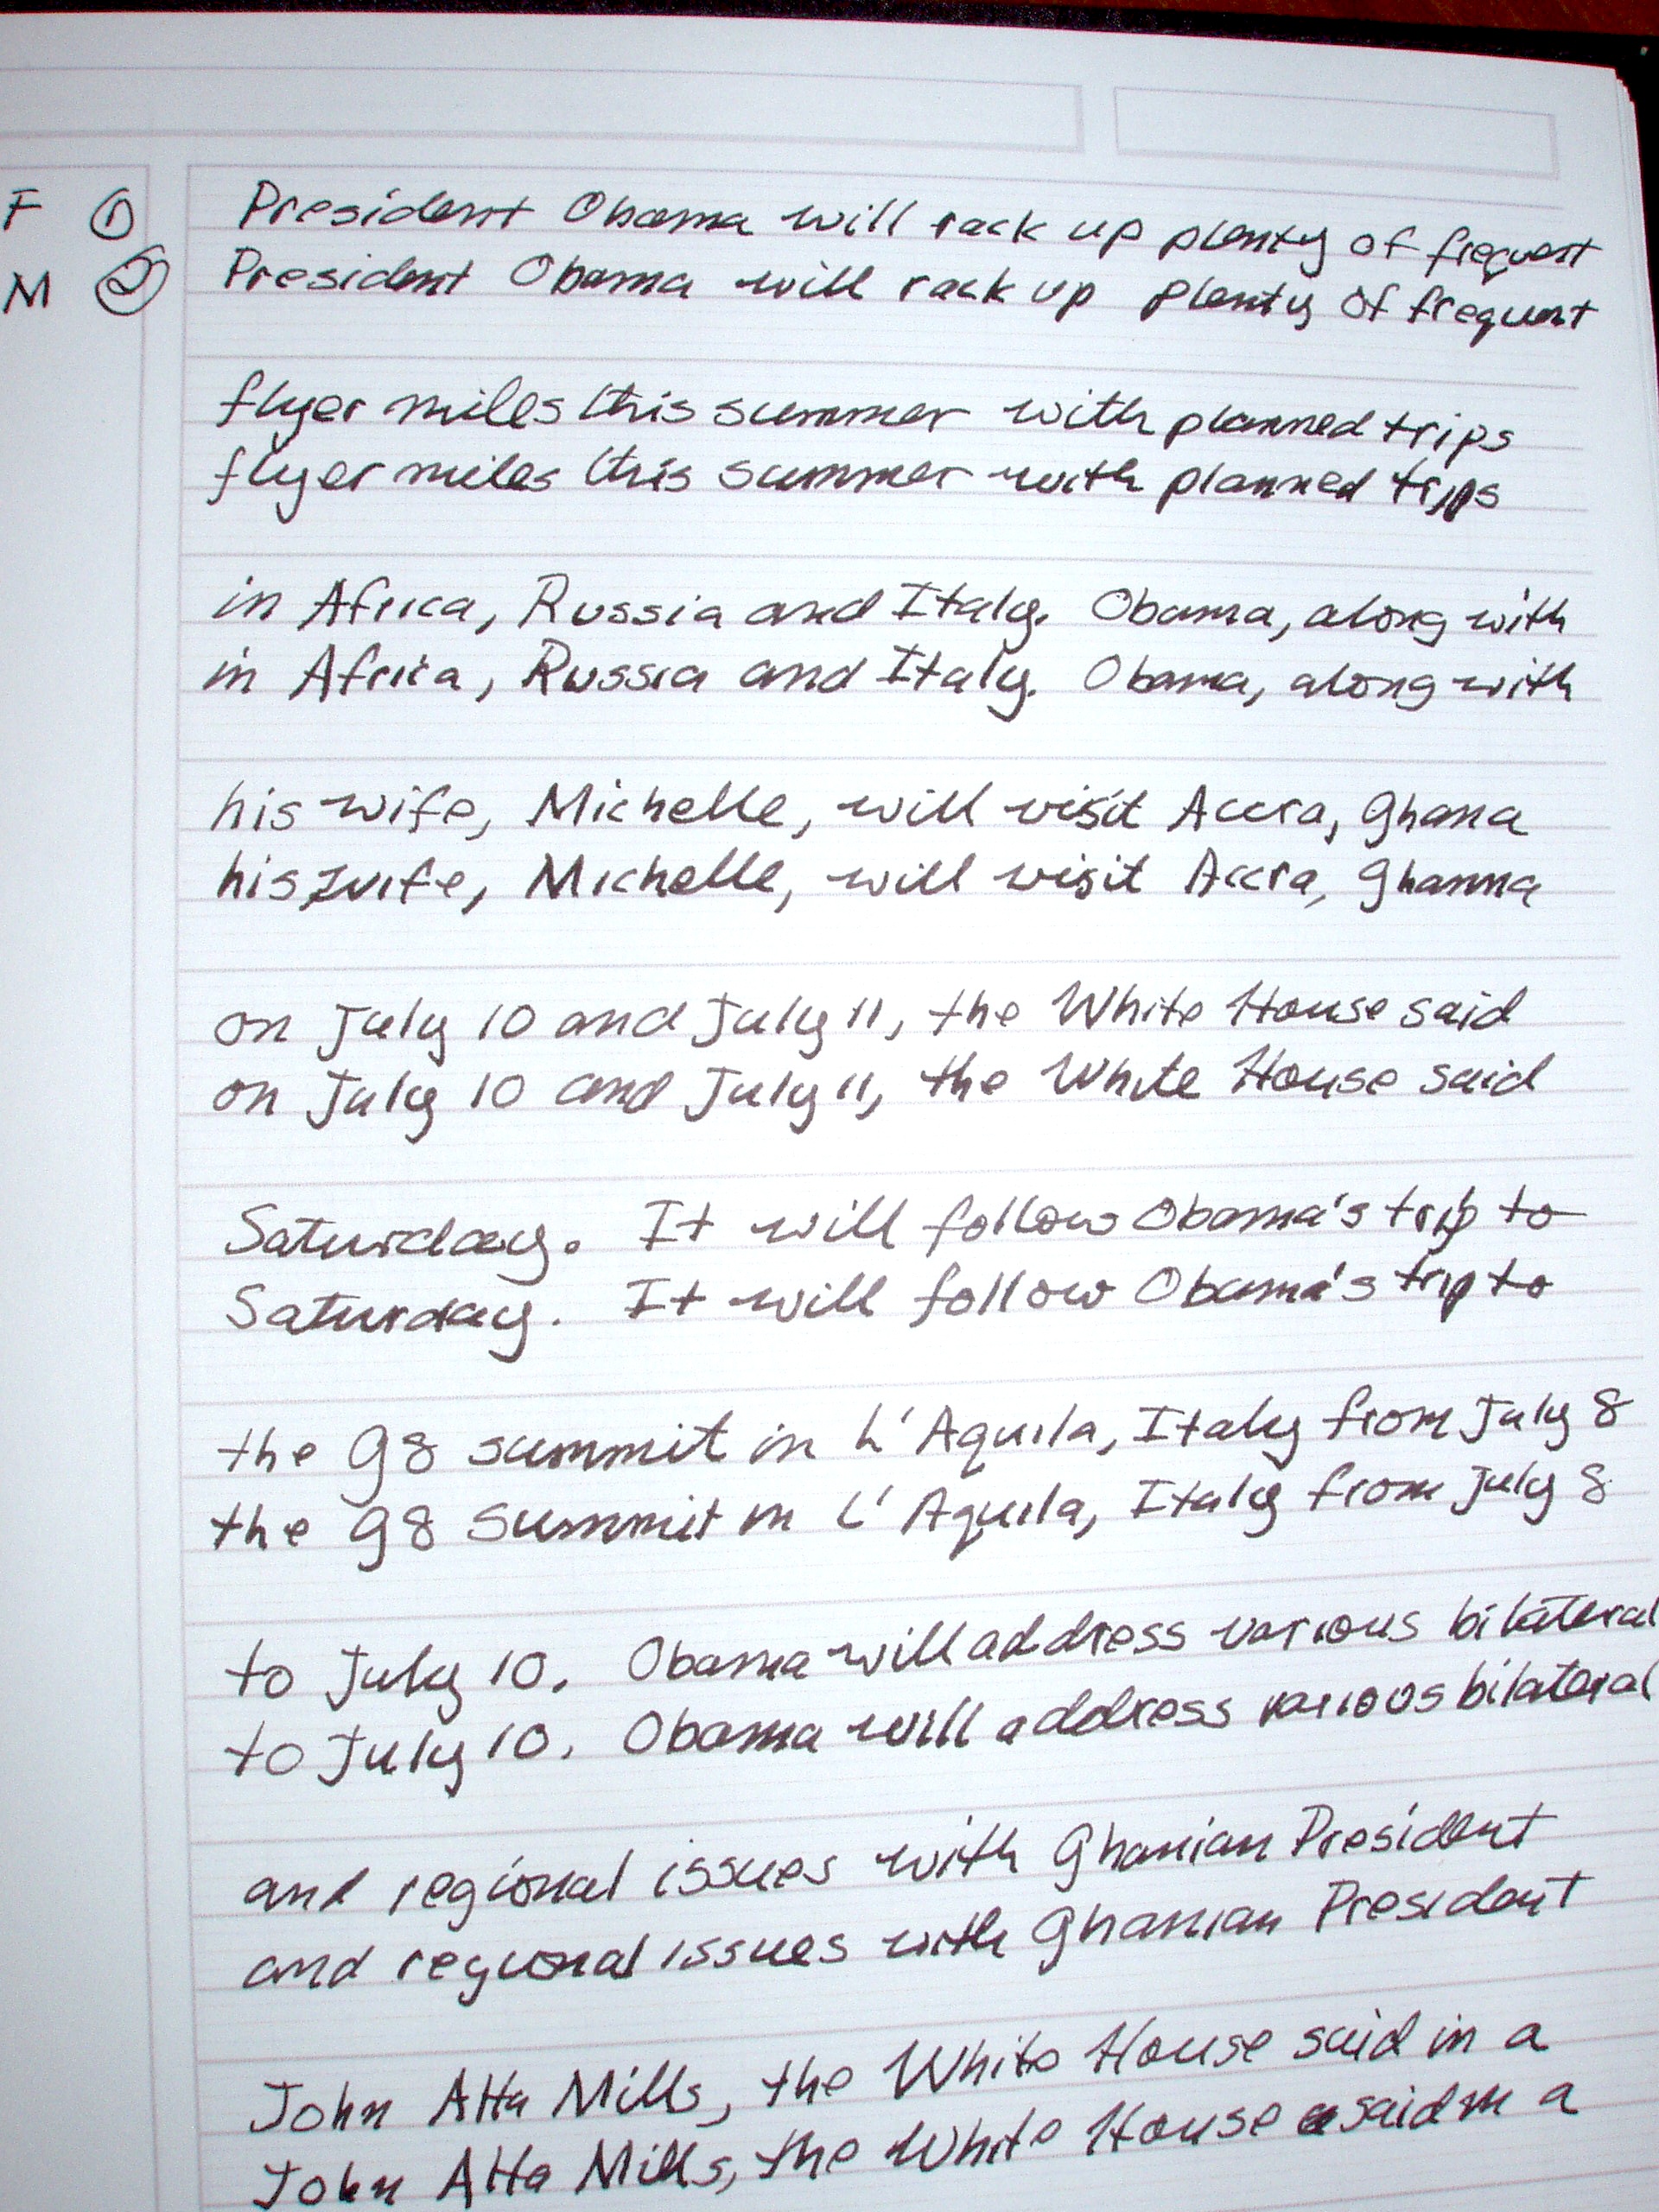 F ① President Obama will rack up plenty of frequent
M ② President Obama will rack up plenty of frequent
flyer miles this summer with planned trips
flyer miles this summer with planned trips
in Africa, Russia and Italy. Obama, along with
in Africa, Russia and Italy. Obama, along with
his wife, Michelle, will visit Accra, Ghana
his wife, Michelle, will visit Accra, Ghanna
on July 10 and July 11, the White House said
on July 10 and July 11, the White House said
Saturday. It will follow Obama's trip to
Saturday. It will follow Obama's trip to
the G8 summit in L'Aquila, Italy from July 8
the G8 Summit in L'Aquila, Italy from July 8
to July 10. Obama will address various bilateral
to July 10. Obama will address various bilateral
and regional issues with Ghanian President
and regional issues with Ghanian President
John Atta Mills, the White House said in a
John Atta Mills, the White House said in a